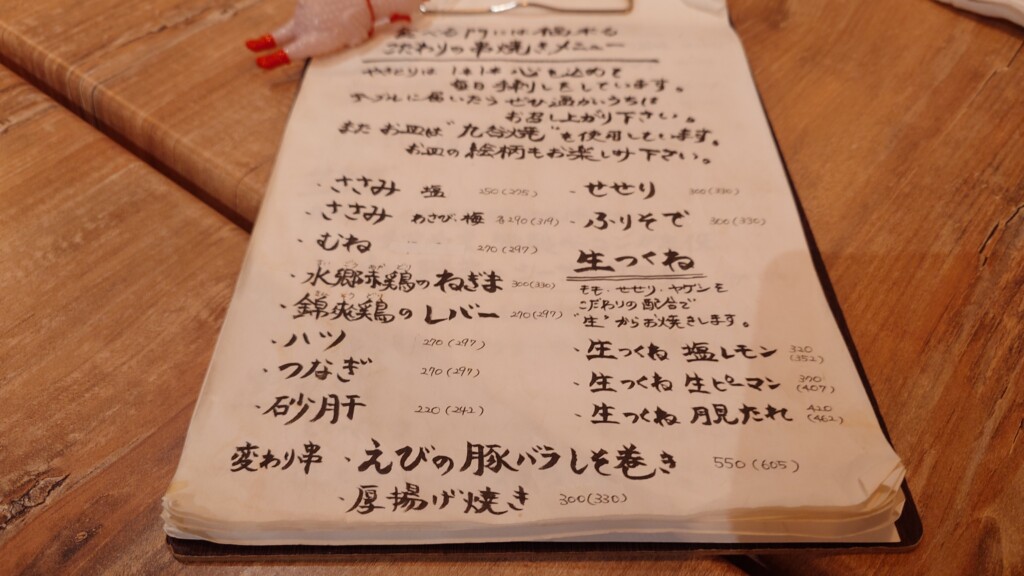 こだわりの串焼きメニュー
やきとりは 1本1本 心を込めて
毎日 手刺しをしています。
テーブルに届いたら ぜひ温かいうちに
お召し上がり下さい。
また お皿は"九谷焼"を使用しています。
お皿の絵柄もお楽しみ下さい。
・ささみ 塩 250(275)
・ささみ わさび、梅 各290(319)
・むね 270(297)
・水郷赤鶏のねぎま 300(330)
・錦爽鶏のレバー 270(297)
・ハツ 270(297)
・つなぎ 270(297)
・砂肝 220(242)
・せせり 300(330)
・ふりそで 300(330)
生つくね
もも・せせり・ヤゲンを
こだわりの配合で
"生"からお焼きします。
・生つくね 塩レモン 320(352)
・生つくね 生ピーマン 370(407)
・生つくね 月見たれ 420(462)
変わり串 ・えびの豚バラしそ巻き 550(605)
・厚揚げ焼き 300(330)